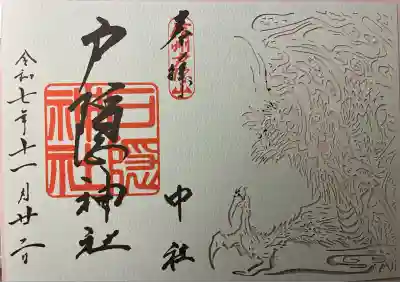 奉拝
中社
戸隠神社
戸隠神社
令和七年十一月廿二日